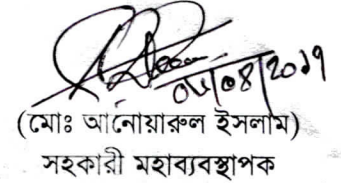 ০৮/০৪/২০১৯
(মোঃ আনোয়ারুল ইসলাম)
সহকারী মহাব্যবস্থাপক